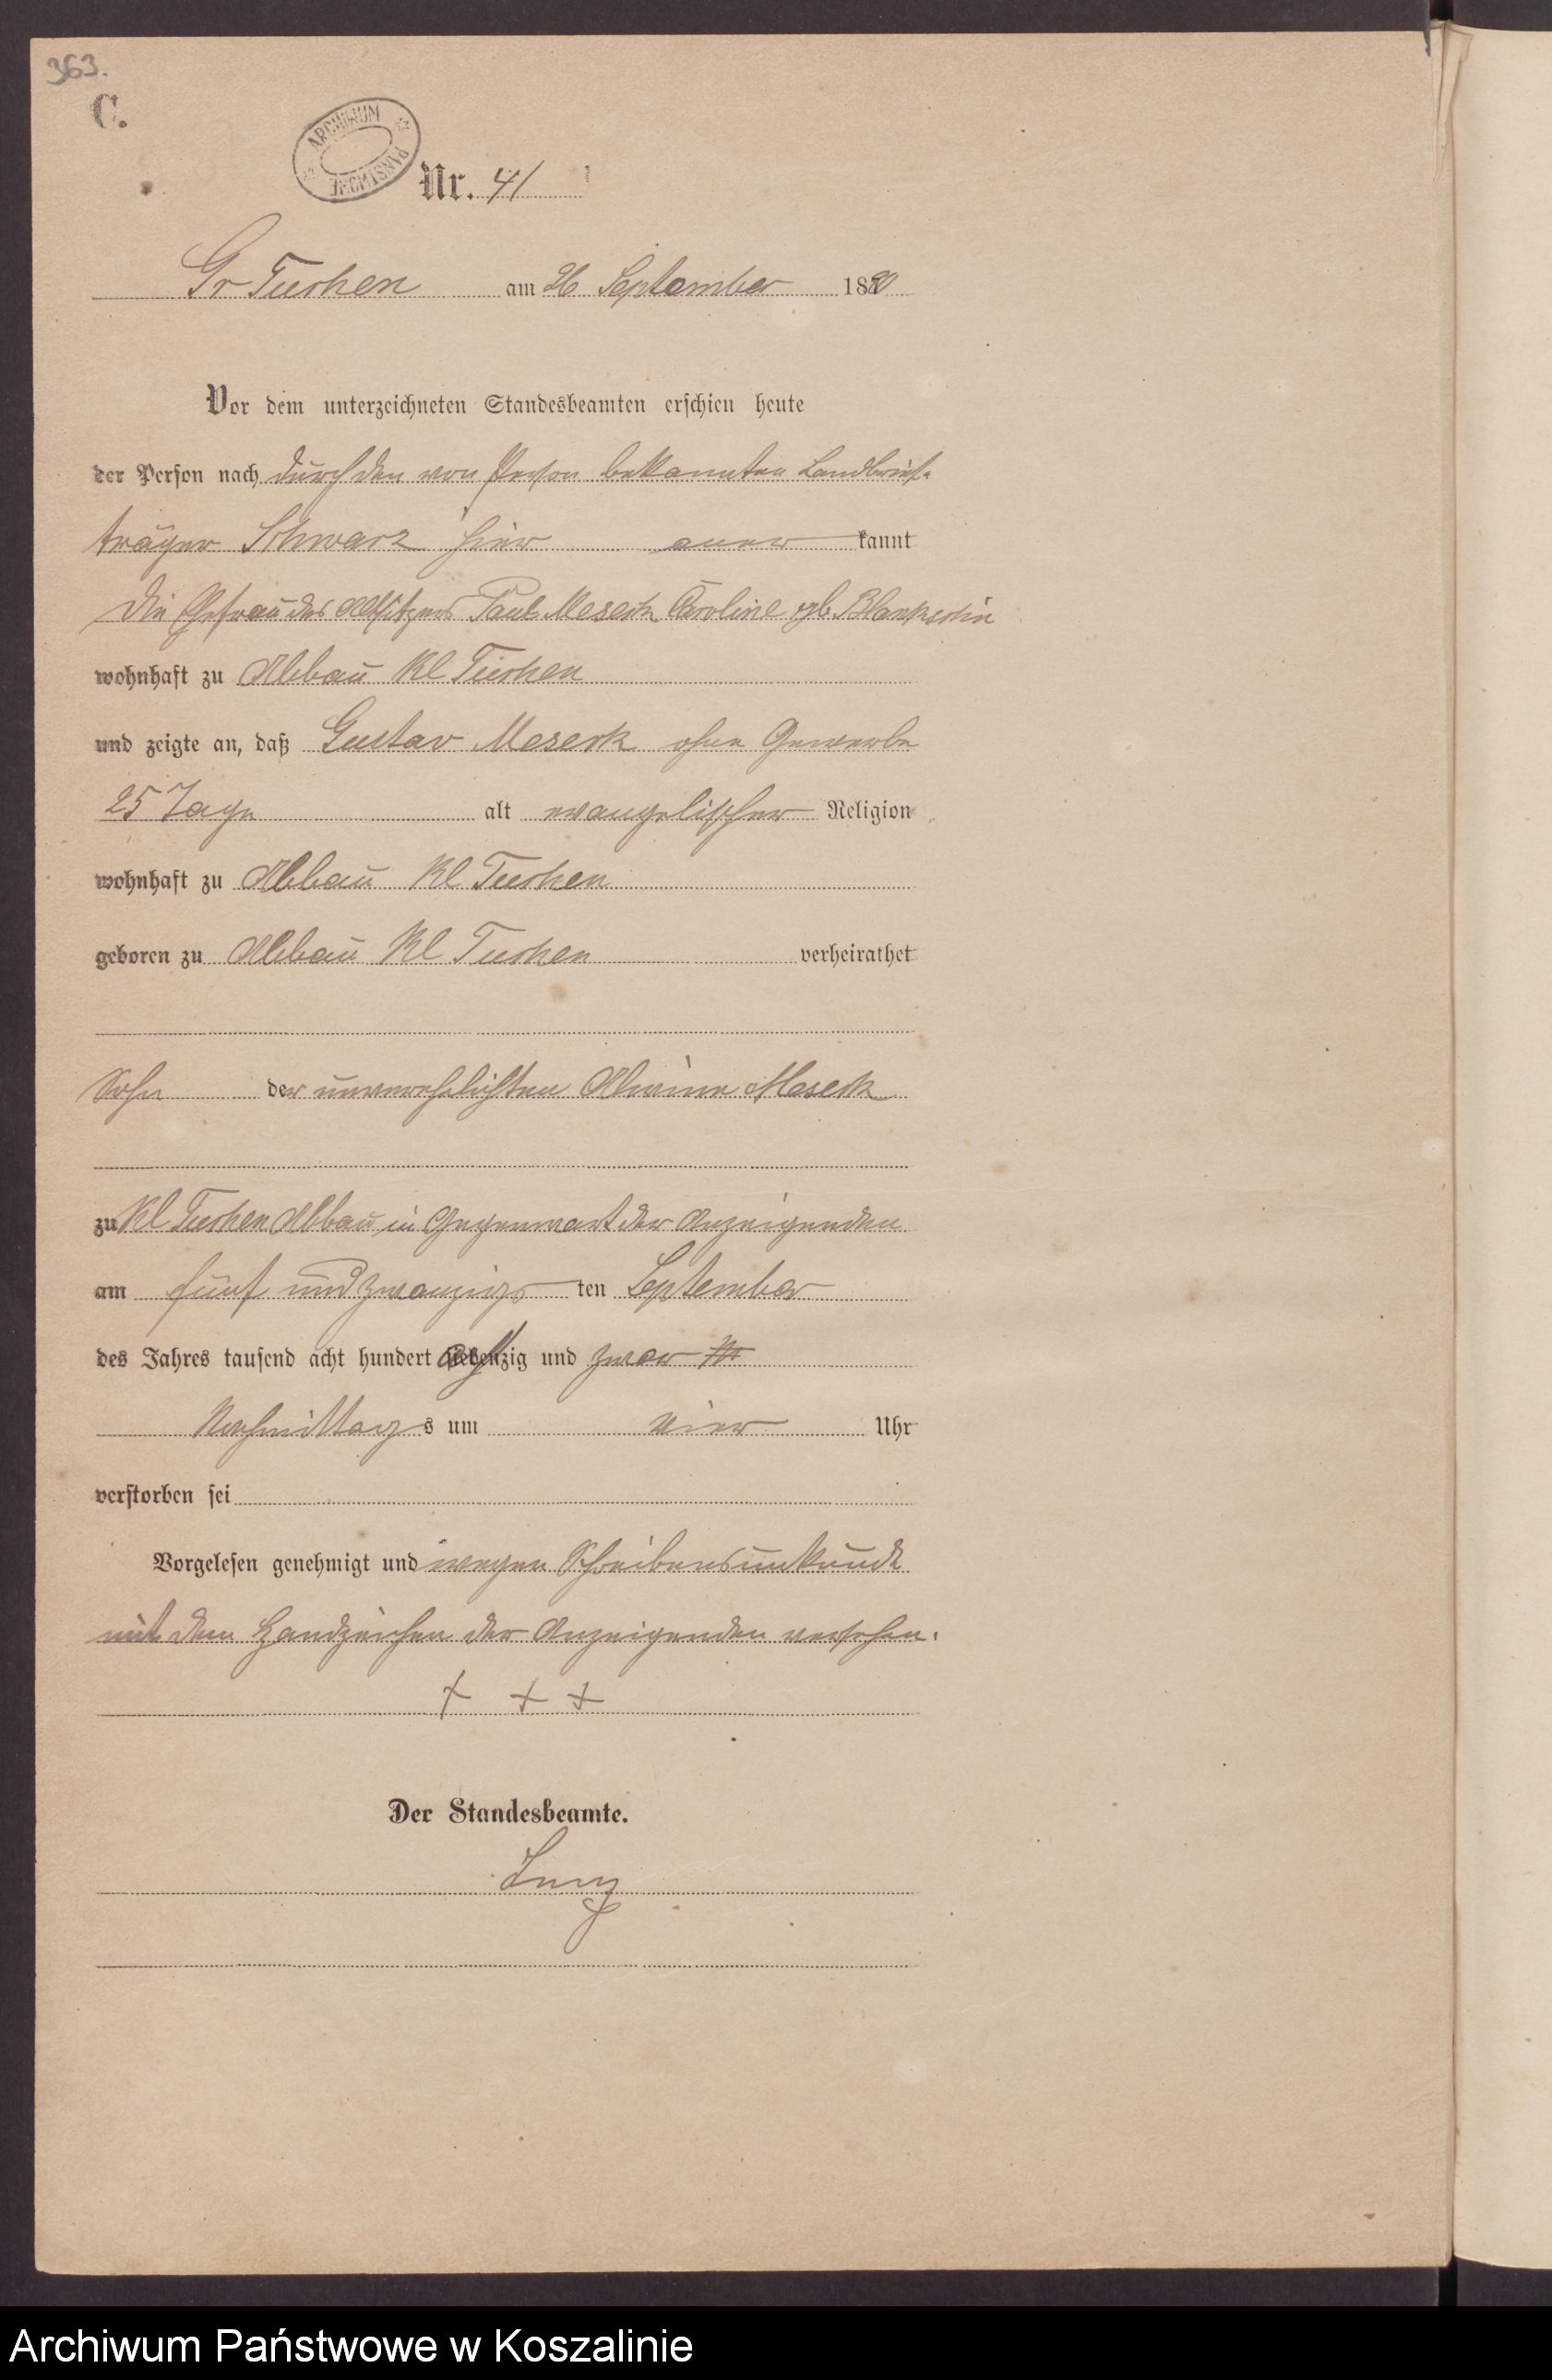 363.
C.
ARCHIWUM PAŃSTWOWE
Nr. 41
Gr Tuchen am 26 September 1880
Vor dem unterzeichneten Standesbeamten erschien heute
der Person nach durch den von Person bekannten Landbrief-
träger Schwarz hier aner kannt
die Ehefrau des Altsitzers Paul Meseck Caroline gb.
wohnhaft zu Abbau Kl Tuchen
und zeigte an, daß Gustav Meseck ohne Gewerbe
25 Tage alt evangelischer Religion
wohnhaft zu Abbau Kl Tuchen
geboren zu Abbau Kl Tuchen verheirathet
Sohn der unverehelichten Alwine Meseck
zu Kl Tuchen Abbau in Gegenwart der Anzeigenden
am fünf und zwanzigs ten September
des Jahres tausend acht hundert achtzig und zwar
Nachmittags um vier Uhr
verstorben sei
Vorgelesen genehmigt und wegen Schreibensunkunde
mit dem Handzeichen der Anzeigenden versehen.
+ + +
Der Standesbeamte.
Archiwum Państwowe w Koszalinie